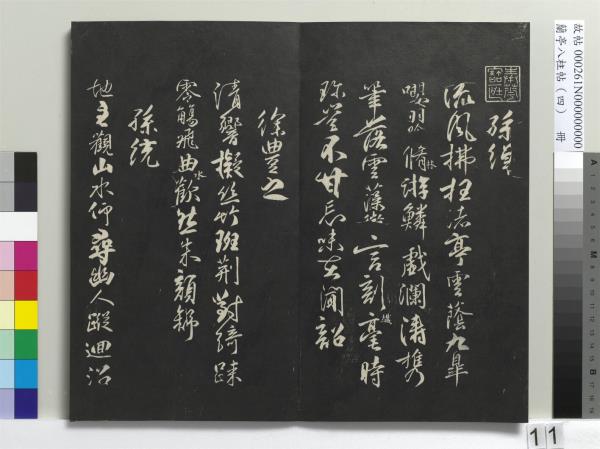 孫綽
流風拂枉渚亭雲蔭九皋
嚶羽吟脩林游鱗戲瀾濤攜
筆落雲藻微言剖纖毫時
珍豈不甘忘味在聞韶
徐豐之
清響擬絲竹班荊對綺疎
零觴飛曲水歡然朱顏舒
孫統
地主觀山水仰尋幽人蹤迴沼
故帖 000261N000000000
蘭亭八柱帖（四） 冊
11